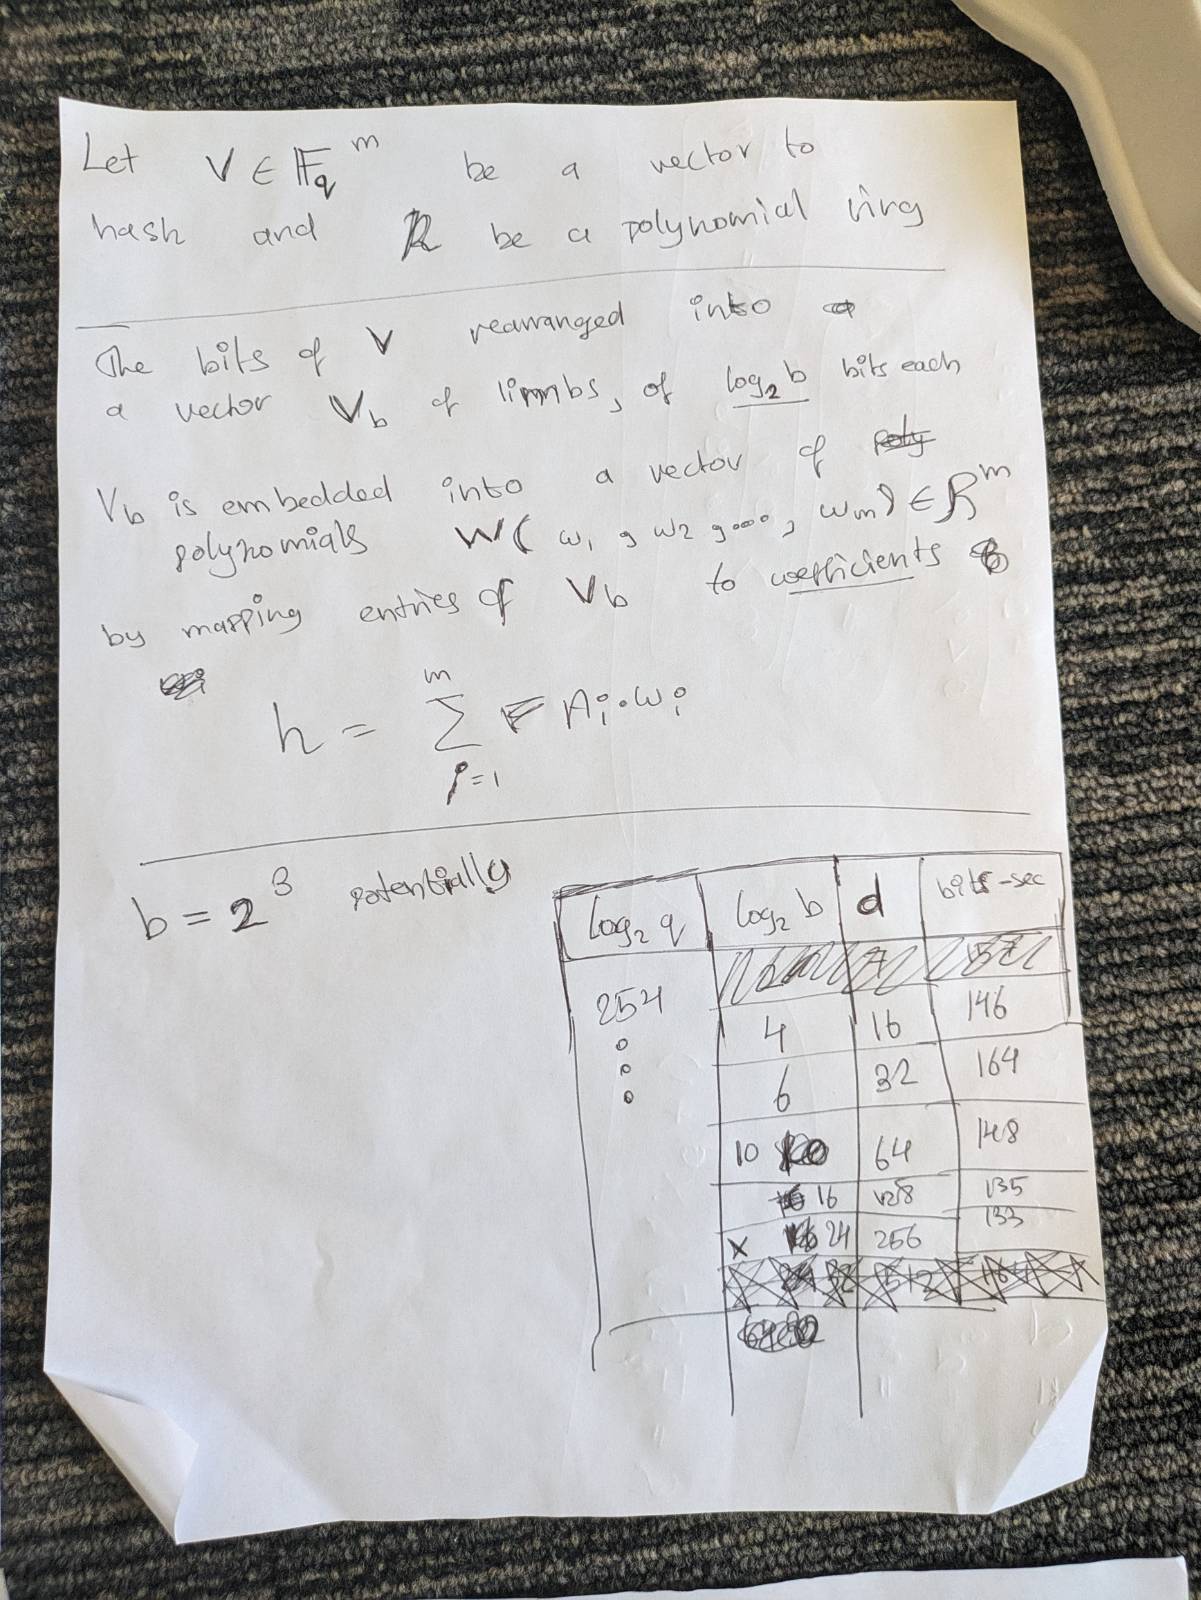 Let V ∈ 𝔽_q^m be a vector to
hash and R be a polynomial ring
The bits of V rearranged into
a vector V_b of limbs, of log₂ b bits each
V_b is embedded into a vector of
polynomials W( ω₁, ω₂, ..., ω_m) ∈ R^m
by mapping entries of V_b to coefficients
h = Σ_{i=1}^{m} A_i · ω_i
b = 2^8 potentially
log₂ q | log₂ b | d | bits-sec
254 | 4 | 16 | 146
6 | 32 | 164
10 | 64 | 148
16 | 128 | 135
x 24 | 256 | 133